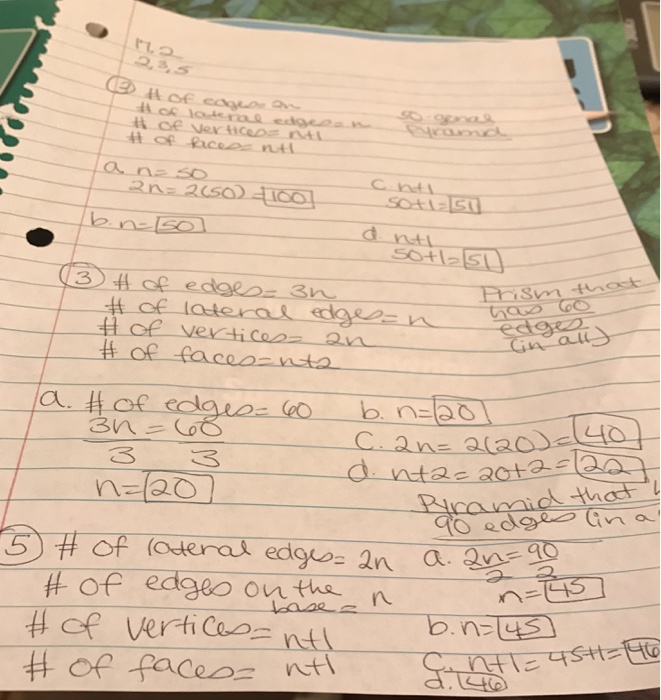 2,3,5
② # of edges = 2n
# of lateral edges = n
# of vertices = n+1
# of faces = n+1
50-gonal
Pyramid
a. n = 50
2n = 2(50) = 100
b. n = 50
c. n+1
50+1 = 51
d. n+1
50+1 = 51
③ # of edges = 3n
# of lateral edges = n
# of vertices = 2n
# of faces = n+2
Prism that
has 60
edges
(in all)
a. # of edges = 60
3n = 60
3 3
n = 20
b. n = 20
c. 2n = 2(20) = 40
d. n+2 = 20+2 = 22
Pyramid that
90 edges (in a
⑤ # of lateral edges = 2n
# of edges on the
base = n
# of vertices = n+1
# of faces = n+1
a. 2n = 90
2 2
n = 45
b. n = 45
c. n+1 = 45+1 = 46
d. 46